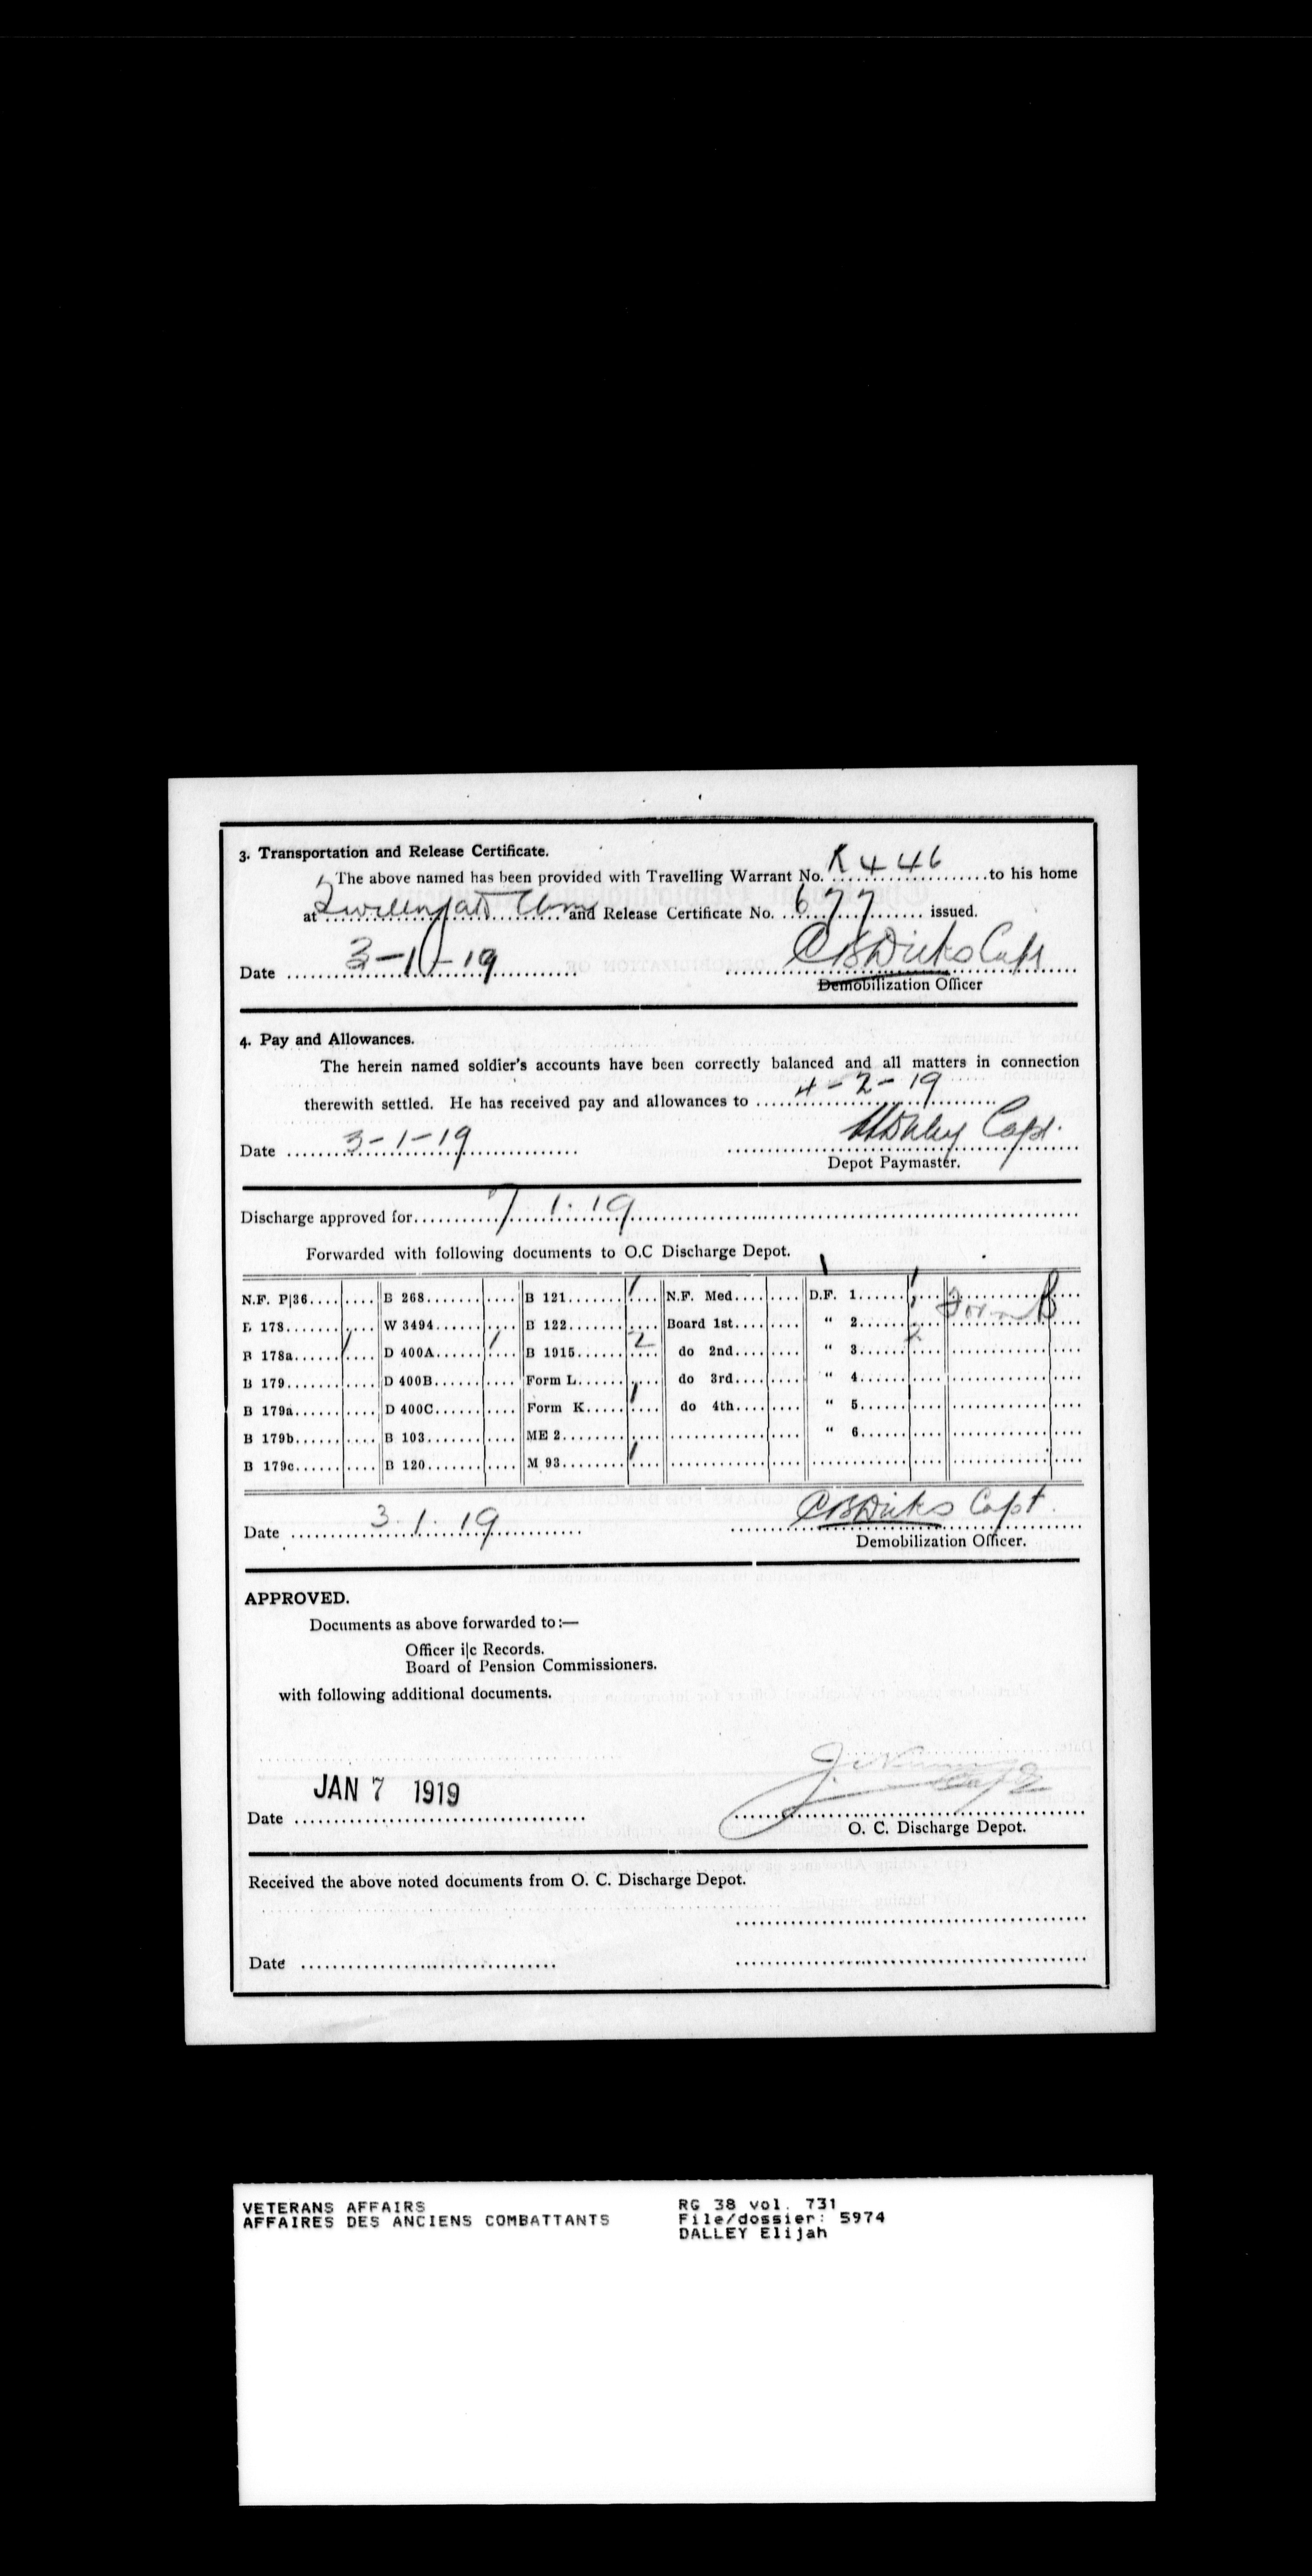 3. Transportation and Release Certificate.
The above named has been provided with Travelling Warrant No. K 446 to his home
at Twillingate and Release Certificate No. 677 issued.
Date 3-1-19 C B Dicks Capt
Demobilization Officer
4. Pay and Allowances.
The herein named soldier's accounts have been correctly balanced and all matters in connection
therewith settled. He has received pay and allowances to 4-2-19
Date 3-1-19 Capt.
Depot Paymaster.
Discharge approved for 7 1. 19
Forwarded with following documents to O.C Discharge Depot.
N.F. P|36 B 268 B 121 1 N.F. Med. D.F. 1 1 Form B
B 178 W 3494 B 122 Board 1st " 2
B 178a 1 D 400A 1 B 1915 2 do 2nd " 3 2
B 179 D 400B Form L do 3rd " 4
B 179a D 400C Form K 1 do 4th " 5
B 179b B 103 ME 2 " 6
B 179c B 120 M 93 1
Date 3. 1. 19 C B Dicks Capt.
Demobilization Officer.
APPROVED.
Documents as above forwarded to:—
Officer i|c Records.
Board of Pension Commissioners.
with following additional documents.
JAN 7 1919
Date
O. C. Discharge Depot.
Received the above noted documents from O. C. Discharge Depot.
Date
VETERANS AFFAIRS RG 38 vol. 731
AFFAIRES DES ANCIENS COMBATTANTS File/dossier: 5974
DALLEY Elijah